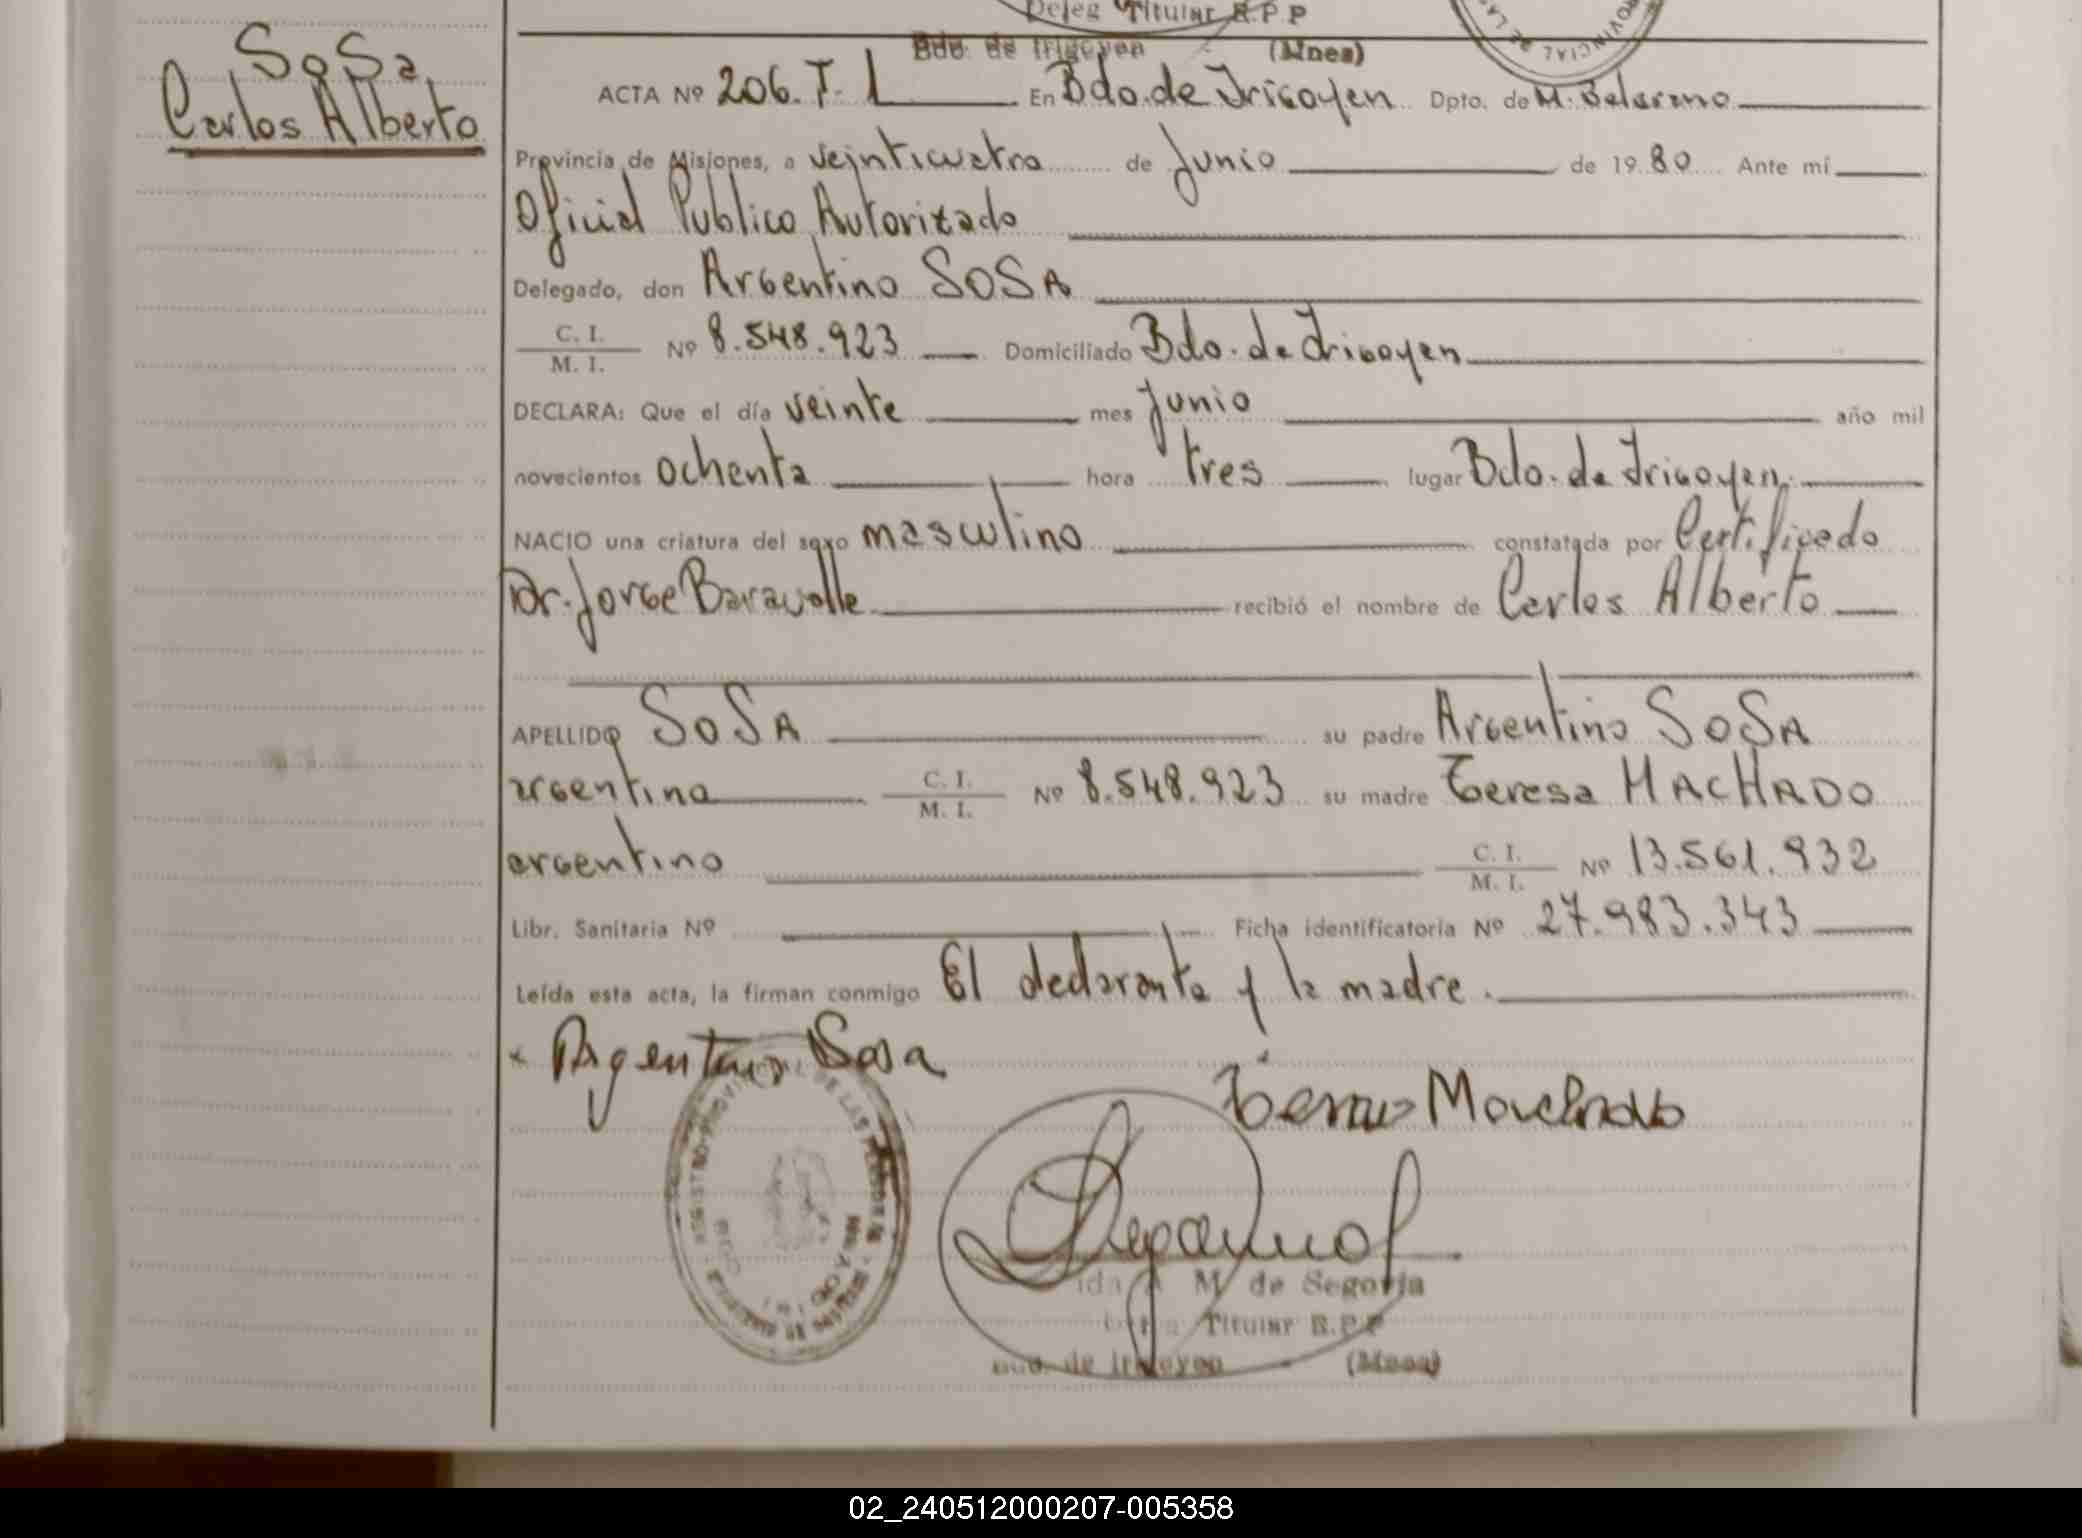 Deleg Titular R.P.P
Bdo. de Irigoyen (Mnes)
PROVINCIAL DE LAS
SoSa
Carlos Alberto
ACTA Nº 206. T. I En Bdo. de Irigoyen Dpto. de M. Belgrano
Provincia de Misiones, a veinticuatro de Junio de 1980 Ante mí
Oficial Publico Autorizado
Delegado, don Argentino SOSA
C. I.
M. I. Nº 8.548.923 Domiciliado Bdo. de Irigoyen
DECLARA: Que el día veinte mes Junio año mil
novecientos ochenta hora tres lugar Bdo. de Irigoyen.
NACIO una criatura del sexo masculino constatada por Certificado
Dr. Jorge Baravalle recibió el nombre de Carlos Alberto
APELLIDO SoSA su padre Argentino SoSA
argentina C. I.
M. I. Nº 8.548.923 su madre Teresa MACHADO
argentino C. I.
M. I. Nº 13.561.932
Libr. Sanitaria Nº Ficha identificatoria Nº 27.983.343
Leída esta acta, la firman conmigo El declarante y la madre.
Argentino Sosa
Machado
REGISTRO PROVINCIAL DE LAS PERSONAS
M. de Segovia
Titular R.P.P
Bdo. de Irigoyen (Mnes)
02_240512000207-005358